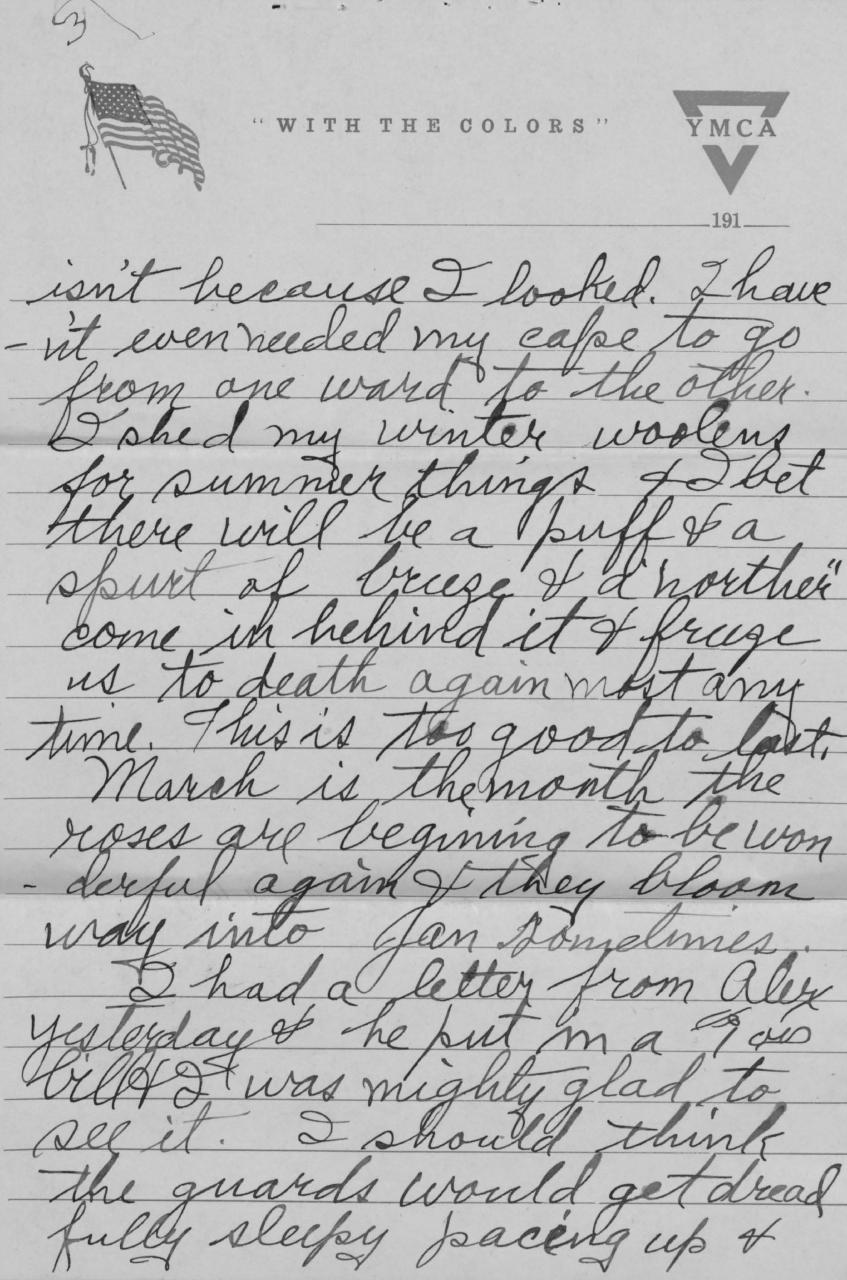 3
"WITH THE COLORS"
YMCA
191
isn't because I looked. I have
- n't even needed my cape to go
from one ward to the other.
I shed my winter woolens
for summer things & I bet
there will be a puff & a
spurt of breeze & a "norther"
come in behind it & freeze
us to death again most any
time. This is too good to last.
March is the month the
roses are begining to be won
- derful again & they bloom
way into Jan sometimes.
I had a letter from Alex
yesterday & he put in a
bill & I was mighty glad to
see it. I should think
the guards would get dread
fully sleepy pacing up &